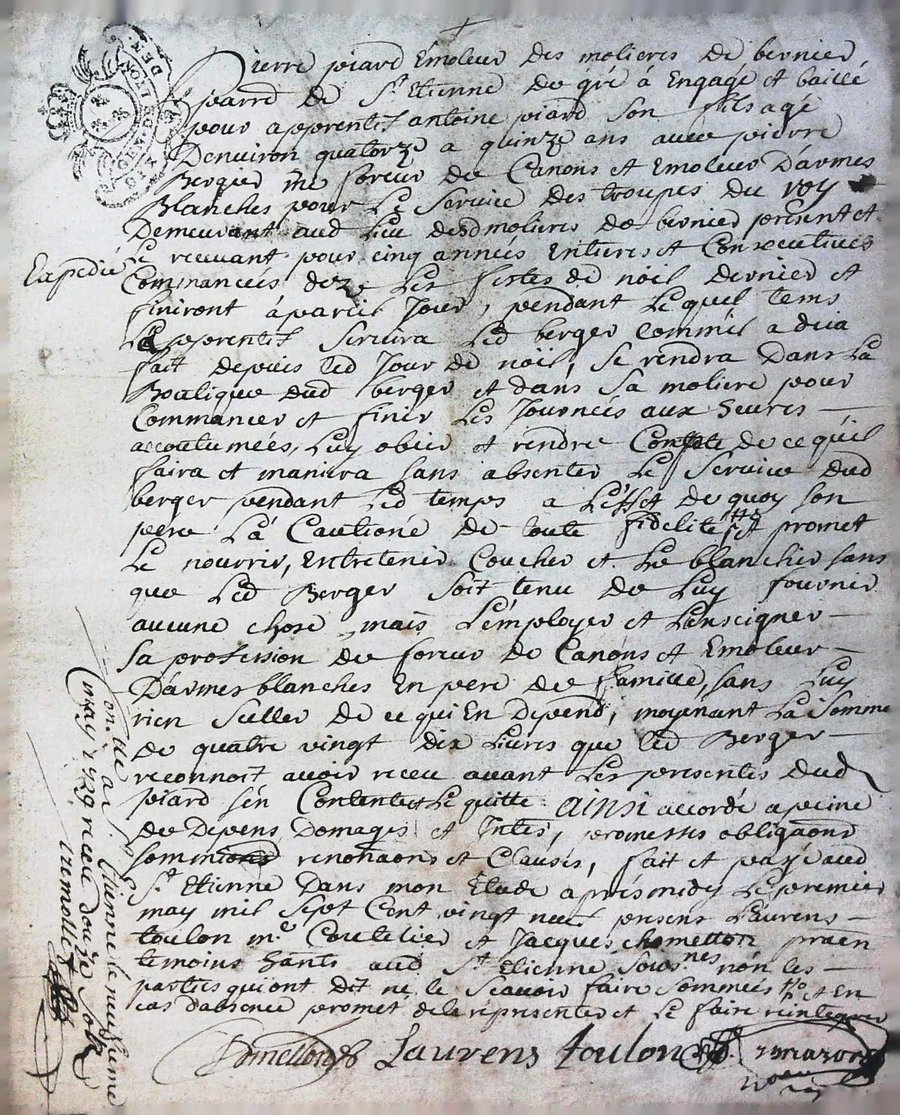 Pierre piard Emoleur des molieres de bernier,
parre de St Etienne de gré a Engagé et baillé
pour apprentif antoine piard son fils agé
Denviron quatorze a quinze ans avec pierre
Bergier me foreur de Canons et Emoleur Darmes
Blanches pour Le Service Des troupes du roy
Demeurant aud Lieu desd molieres de bernier present et
Le recevant pour cinq années Entieres et Consecutives
Expedié
Commancées dez Les festes de noel dernier et
finiront à pareil Jour, pendant Lequel tems
Lapprentif Servira Led berger Comme il a deia
fait depuis led Jour de noel, se rendra Dans La
Boutique dud berger et dans Sa moliere pour
Commancer et finir Les Journées aux heures
accoutumées, Luy obeir et rendre Compte de ce quil
faira et maniera sans absenter Le Service dud
berger pendant Led temps a L'effet de quoy son
pere La Cautioné de toute fidelité et promet
Le nourrir, Entretenir Coucher et Le blanchir sans
que Led Berger soit tenu de Luy fournir
aucune chose, mais L'employer et L'enseigner
Sa profession de foreur de Canons et Emoleur
D'armes blanches En pere de famille, sans Luy
rien Seller de ce qui En Depend, moyenant La Somme
de quatre vingt dix Livres que led Berger
reconnoit avoir receu avant Les presentes dud
piard s'en Contente et Le quitte. AINSI accordé a peine
de Depens Domages et Intes, promesses obligaons
Soumissions renonaons et Clauses, fait et passé aud
St Etienne Dans mon Etude après midy Le premier
may mil Sept Cent vingt neuf presens Laurens
toulon me Coutelier et Jacques chometton praen
temoins hants aud St Etienne Sousnes non les
parties qui ont dit ne le Scavoir faire Sommées et En
cas dabsence promet de le representer et Le faire reintegrer
Chometton Laurens toulon
on.lle a St Etienne le neufieme
may 1729 receu douze sols
cremollet